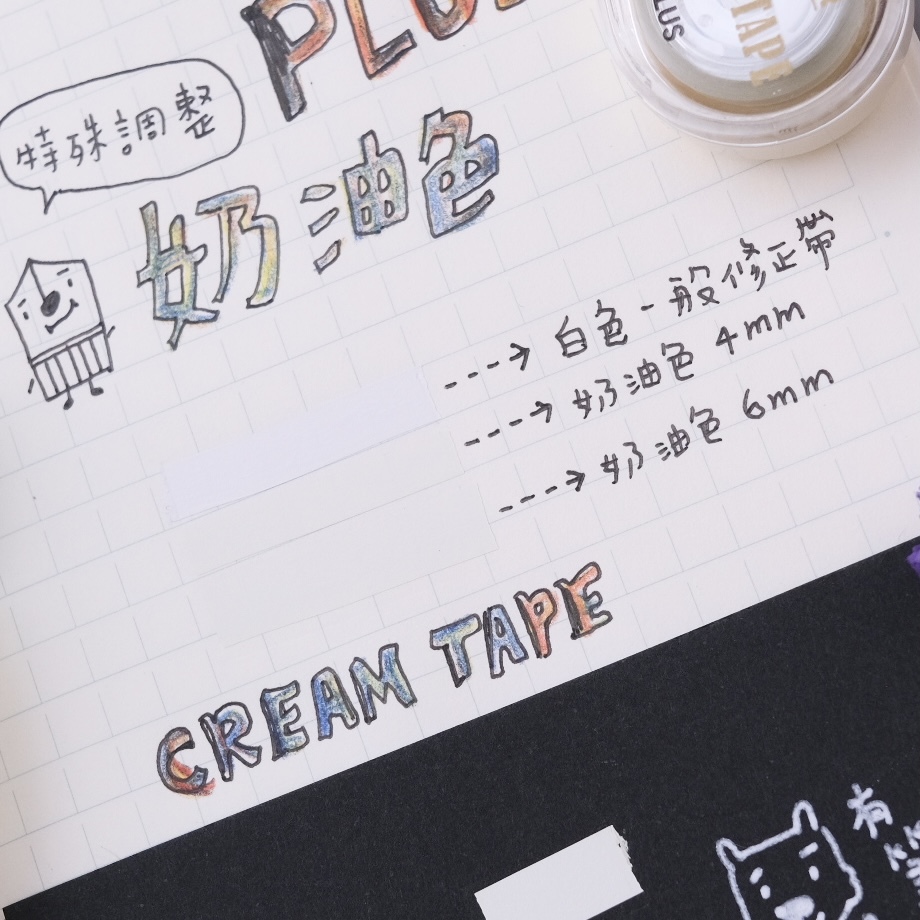 PLUS
PLUS
TAPE
特殊調整
奶油色
---→ 白色一般修正帶
---→ 奶油色 4mm
---→ 奶油色 6mm
CREAM TAPE
有